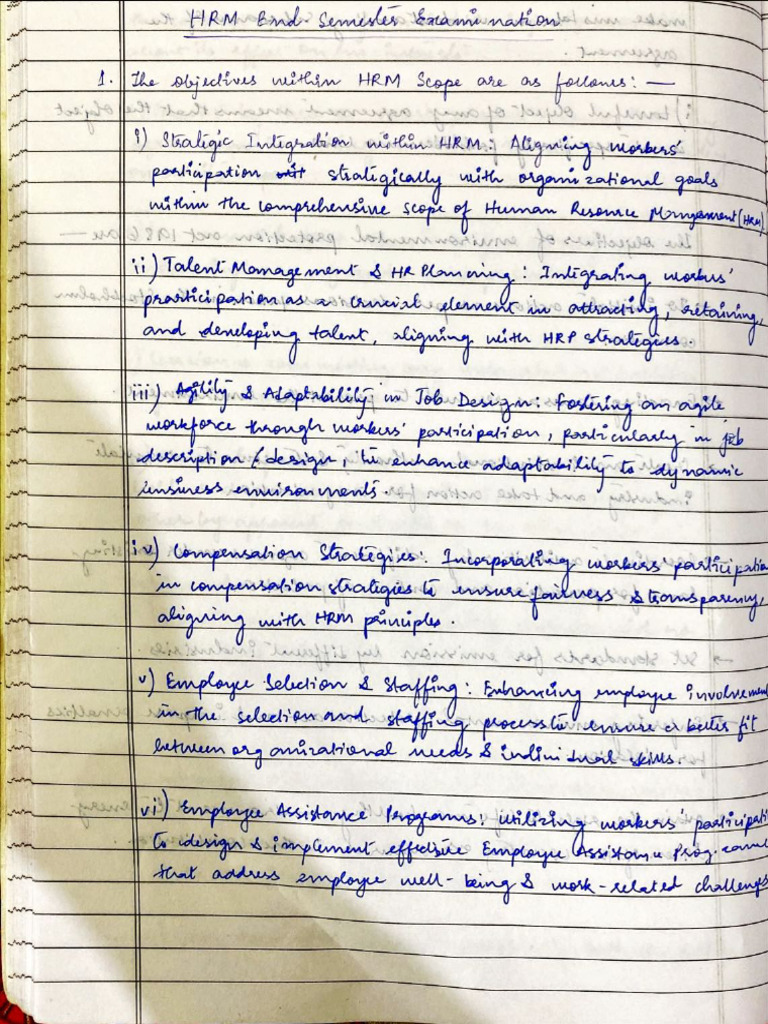 HRM End Semester Examination
1. The objectives within HRM Scope are as follows: —
i) Strategic Integration within HRM: Aligning workers'
participation strategically with organizational goals
within the comprehensive scope of Human Resource Management (HRM)
ii) Talent Management & HR Planning: Integrating workers'
participation as a crucial element in attracting, retaining,
and developing talent, aligning with HRP strategies.
iii) Agility & Adaptability in Job Design: Fostering an agile
workforce through workers' participation, particularly in job
description/design, to enhance adaptability to dynamic
business environments.
iv) Compensation Strategies: Incorporating workers' participatio
in compensation strategies to ensure fairness & transparency,
aligning with HRM principles.
v) Employee Selection & Staffing: Enhancing employee involvemen
in the selection and staffing process to ensure a better fit
between organizational needs & individual skills.
vi) Employee Assistance Programs: Utilizing workers' participati
to design & implement effective Employee Assistance
that address employee well-being & work-related challenges